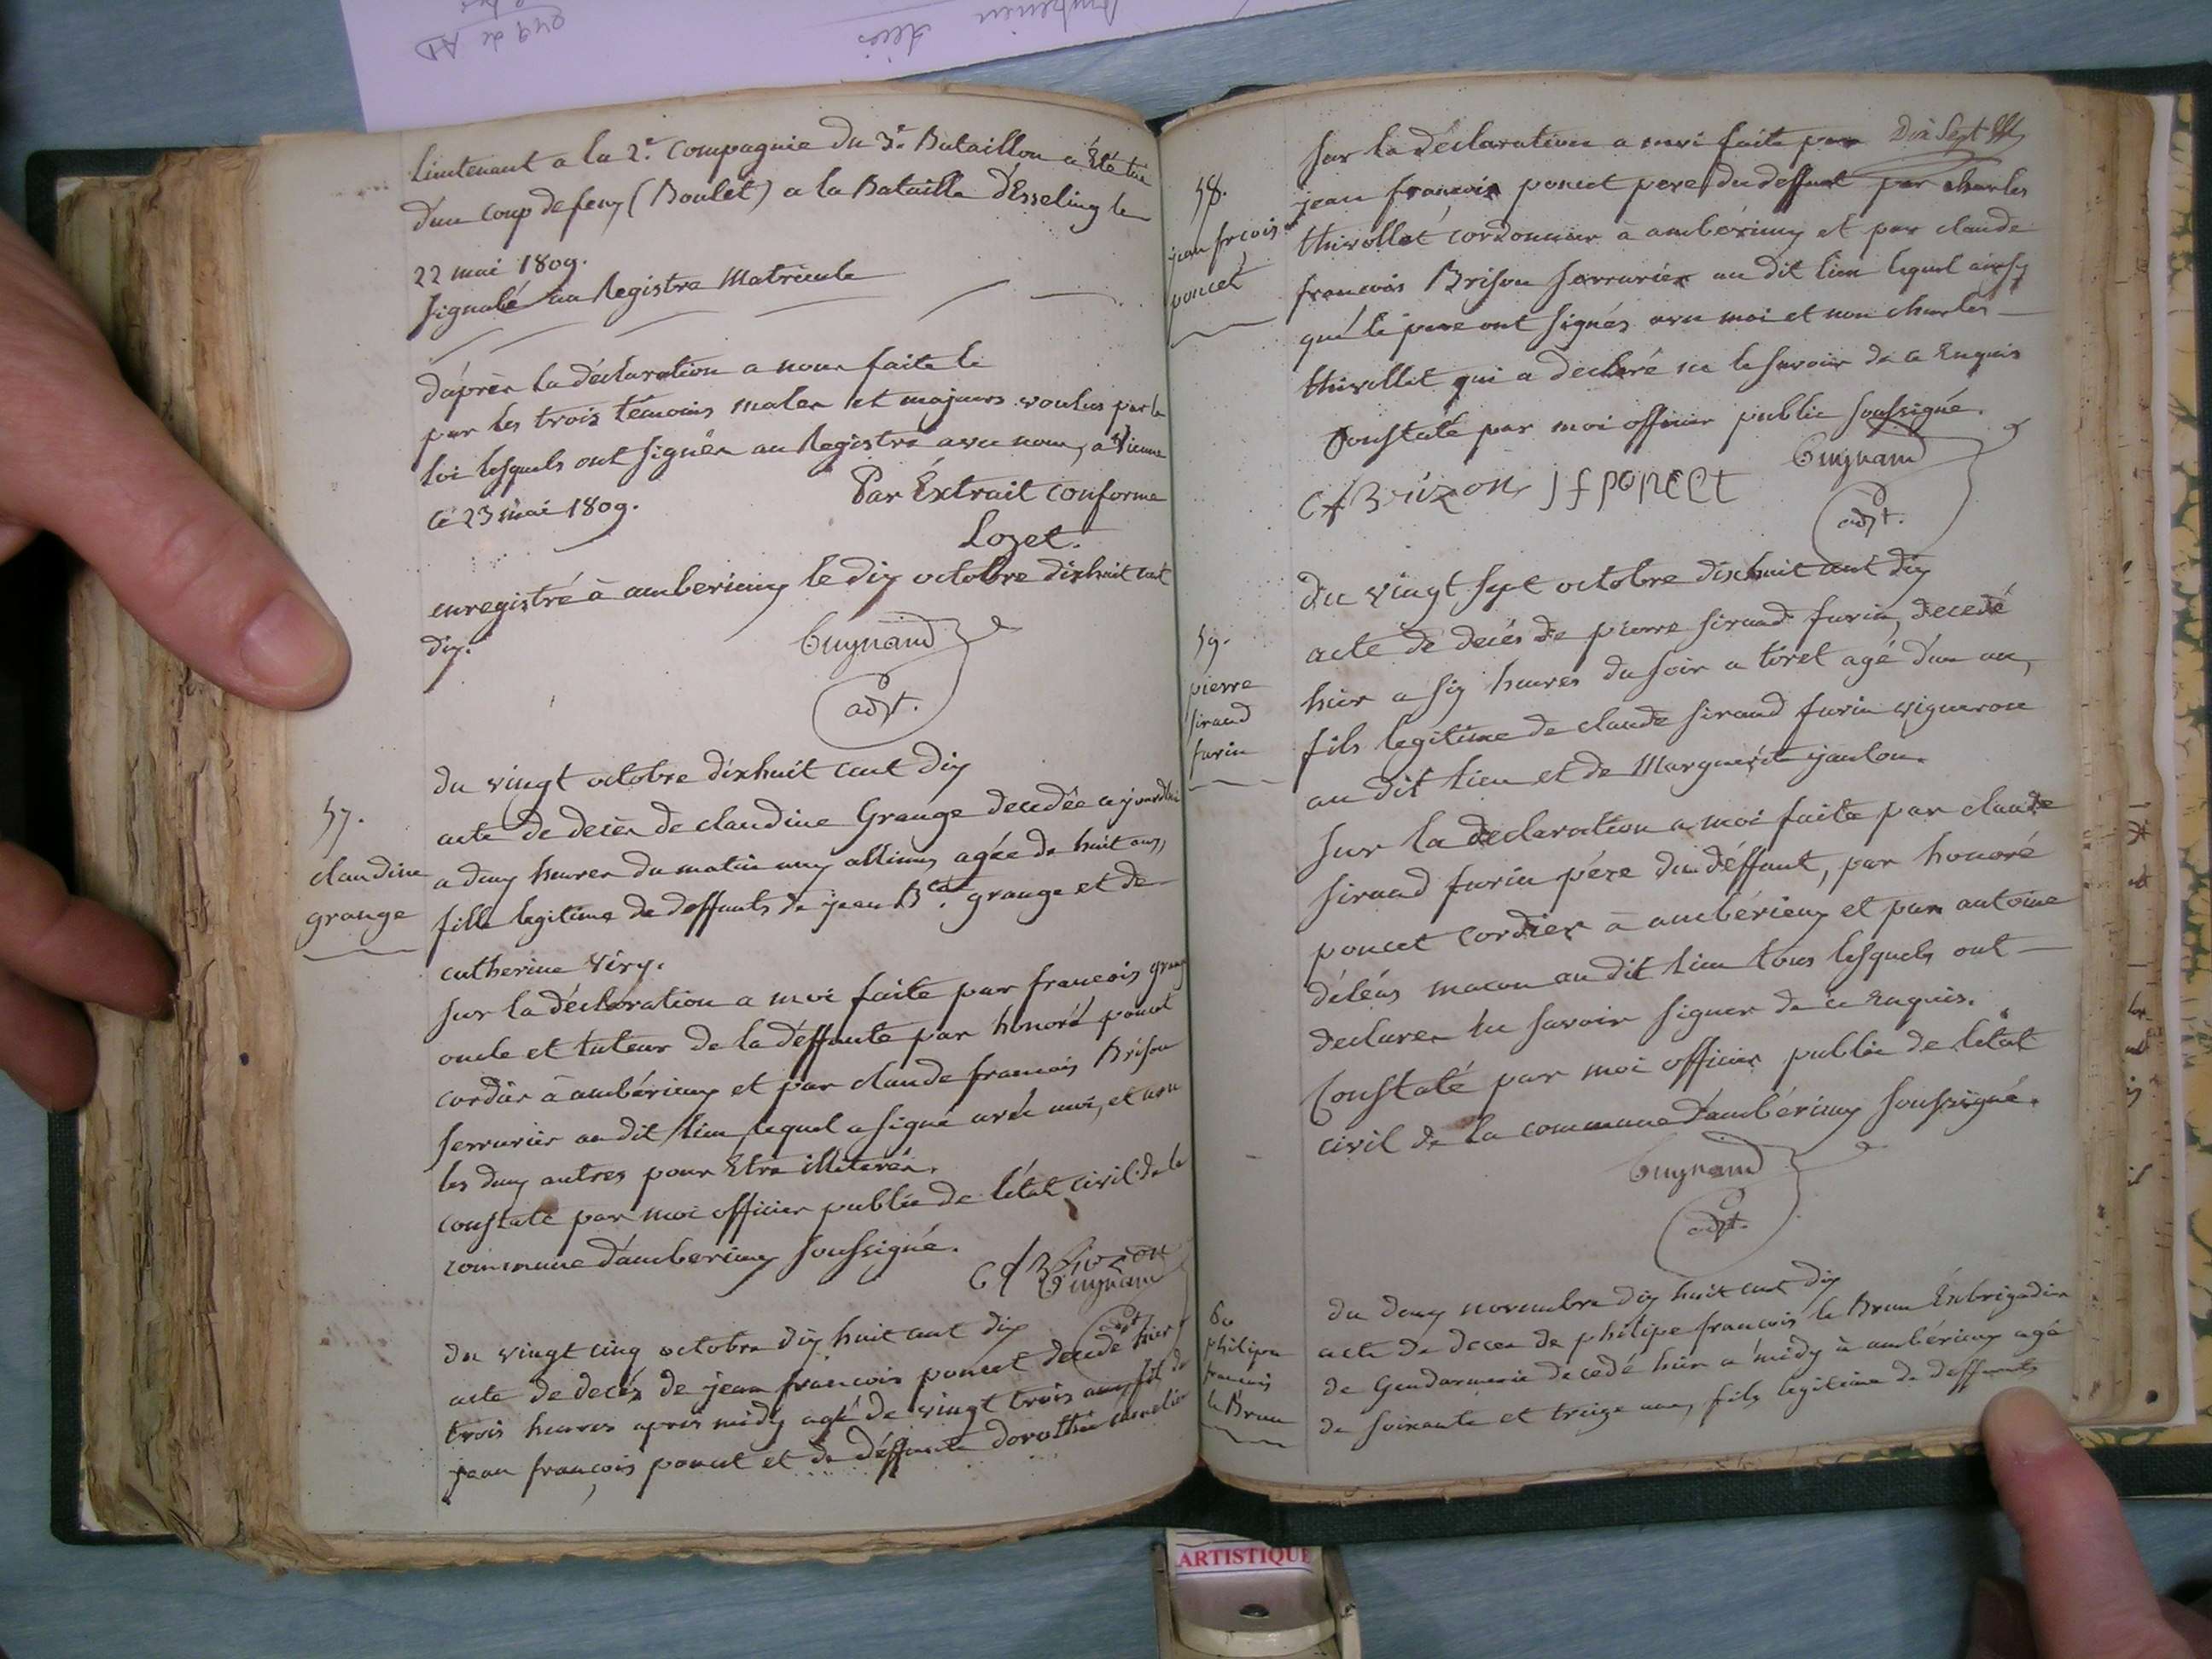 lieutenant a la 2.e Compagnie du 3.e Bataillon a Été tué
d'un coup de feux (Boulet) a la Bataille d'Esseling le
22 mai 1809.
signalé au Registre Matricule
d'après la déclaration a nous faite le
par les trois témoins males et majeurs voulus par la
loi lesquels ont signés au Registre avec nous, a Vienne
ce 23 mai 1809.
Par Extrait conforme
Lozet.
enregistré à amberieux le dix octobre dixhuit cent
dix.
Guynand
adjt.
57.
claudine
grange
du vingt octobre dixhuit cent dix
acte de decès de claudine Grange decedée aujourdhui
a deux heures du matin aux allimes, agée de huit ans,
fille legitime de deffunts de jean B.te grange et de
catherine Viry.
sur la déclaration a moi faite par francois grange
oncle et tuteur de la deffunte par honoré poncet
cordier à ambérieux et par claude francois Brison
serrurier au dit lieu, lequel a signé avec moi, et non
les deux autres pour être illiterés.
constaté par moi officier public de l'état civil de la
commune d'amberieux soussigné.
Guynand
adjt
du vingt cinq octobre dix huit cent dix
acte de decès de jean françois poncet decedé hier
trois heures apres midy agé de vingt trois ans, fils de
jean françois poncet et de déffunte dorothée
58.
jean frcois
poncet
Dix Sept
sur la déclaration a moi faite par
jean francois poncet pere du deffunt par charles
thivollet cordonnier à ambérieux et par claude
francois Brison serrurier au dit lieu lequel ainsy
que le pere ont signés avec moi et non charles
thivollet qui a declaré ne le savoir de ce Enquis
Constaté par moi officier public soussigné.
Guynand
adjt.
cf Brizon jf poncet
59.
pierre
siraud
furin
du vingt sept octobre dixhuit cent dix
acte de decés de pierre siraud furin, decedé
hier a six heures du soir a toret agé d'un an,
fils legitime de claude siraud furin vigneron
au dit lieu et de Marguerite janton.
sur la declaration a moi faite par claude
siraud furin pére du déffunt, par honoré
poncet cordier à ambérieux et par antoine
déléas macon au dit lieu tous lesquels ont
declarés ne savoir signer de ce enquis.
Constaté par moi officier public de létat
civil de la commune d'ambérieux soussigné.
Guynand
adjt.
60
philipe
francois
le Brun
du deux novembre dix huit cent dix
acte de deces de philipe francois le Brun Exbrigadier
de Gendarmerie decedé hier a midy à ambérieux agé
de soixante et treize ans, fils legitime de deffunts
ARTISTIQUE